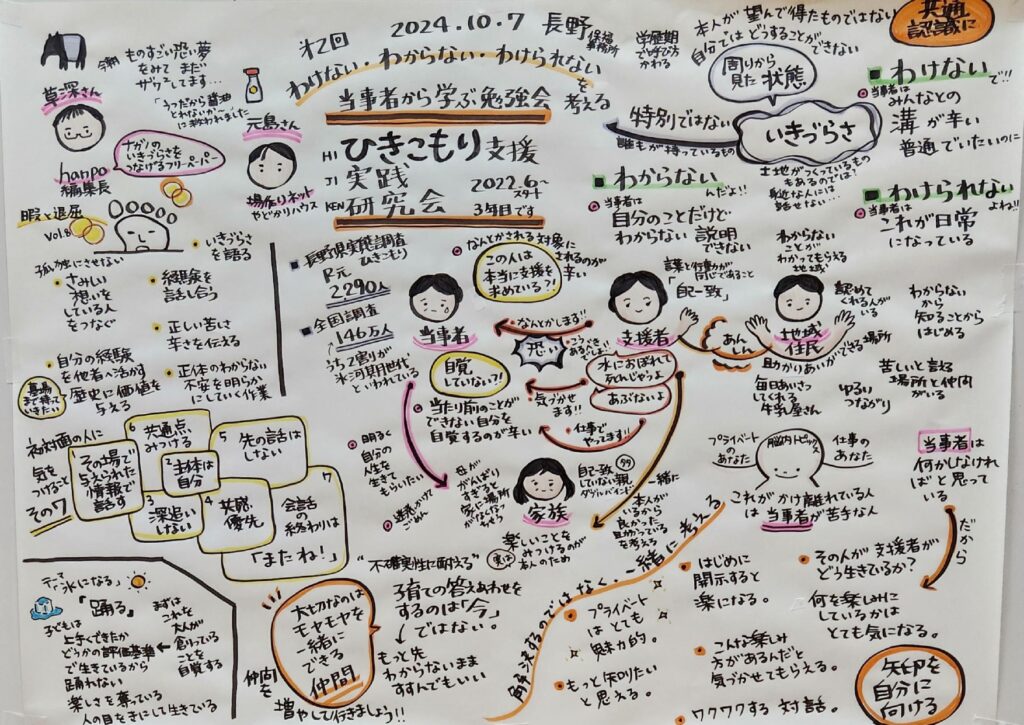 2024.10.7 長野 保福事務所
第2回
わけない・わからない・わけられない
当事者から学ぶ勉強会を考える
HI ひきこもり支援
JI 実践
KEN 研究会
2022.6〜スタート
3年目です
今朝 ものすごい恐い夢
をみて まだ
ザワってます…
「うつだから醤油
とれないか〜」
に救われました
草深さん
hanpo
編集長
ナガノの
いきづらさを
つなげるフリーペーパー
元島さん
場作りネット
やどかりハウス
暇と退屈
vol.8
孤独にさせない
・さみしい
想いを
している人
をつなぐ
・自分の経験
を他者へ活かす
墓場まで持っていきたい
歴史に価値を
与える
・いきづらさ
を語る
・経験を
話し合う
・正しい苦しさ
辛さを伝える
・正体のわからない
不安を明らか
にしていく作業
初対面の人に
気を
つけること
その7
1 その場で
与えられた
情報で
話す
2 主体は
自分
3 深追い
しない
4 共感
優先
5 先の話は
しない
6 共通点
みつける
7 会話の
終わりは
「またね!」
「氷になる」
「踊る」
子どもは
上手くできたか
どうかの評価基準
で生きているから
踊れない
楽しさを奪っている
人の目をきにして生きている
まずは
これを
大人が
創っている
ことを
自覚する
学歴期
で呼び方
かわる
本人が望んで得たものではない
自分ではどうすることができない
周りから
見た状態
共通
認識に
いきづらさ
特別ではない
誰もが持っているもの
土地がつくっているもの
もあるのでは?
身近な人には
話せない…
■わけないで!!
当事者は
みんなとの
溝が辛い
普通でいたいのに
■わからないんだよ!!
当事者は
自分のことだけど
わからない 説明
できない
■わけられないよね!!
当事者は
これが日常
になっている
■長野県実態調査
ひきこもり
R元
2290人
■全国調査
146万人
うち2割が
氷河期世代
といわれている
なんとかされる対象に
されるのが
辛い
この人は
本当に支援を
求めている?!
当事者
支援者
地域
住民
家族
言葉と行動が
同じであること
「自己一致」
なんとかしまる!!
恐い
こうあるべき
らしい
自覚
していない?!
水におぼれて
死んじゃうよ
あぶないよ
気づかせ
ます!!
仕事で
やってます!!
当たり前のことが
できない自分を
自覚するのが辛い
あんしん
わからない
ことが
わかってもらえる
地域
認めて
くれる人が
いる
助かりあいができる場所
毎日あいさつ
してくれる
牛乳屋さん
ゆるい
つながり
わからない
から
知ることから
はじめる
苦しいと言える
場所と仲間
がいる
明るく
自分の
人生を
生きて
もらいたい
迷惑かけて
ごめん
母が
がんばり
すぎると
家に場所
がなくなっちゃう
自己一致
していない親
ダブルバインド
楽しいことを
みつけるのが
本人のため
一緒に
本人が
いるから
良かった
助かっている
を考える
プライベート
のあなた
脳内トピックス
仕事の
あなた
これがかけ離れている人
は当事者が苦手な人
当事者は
何かしなければ
ばと思って
いる
だから
"不確実性に耐える"
子育ての答えあわせを
するのは「今」
ではない。
もっと先
わからないまま
すすんでもいい
大切なのは
モヤモヤを
一緒に
できる
仲間
仲間を
増やして行きましょう!!
解決するのではなく、一緒に考える
・プライベート
はとても
魅力的。
・もっと知りたい
と思える。
・はじめに
開示すると
楽になる。
・こんな楽しみ
方があるんだと
気づかせてもらえる。
・ワクワクする対話。
・その人が支援者が
どう生きているか?
何を楽しみに
しているかは
とても気になる。
矢印を
自分に
向ける